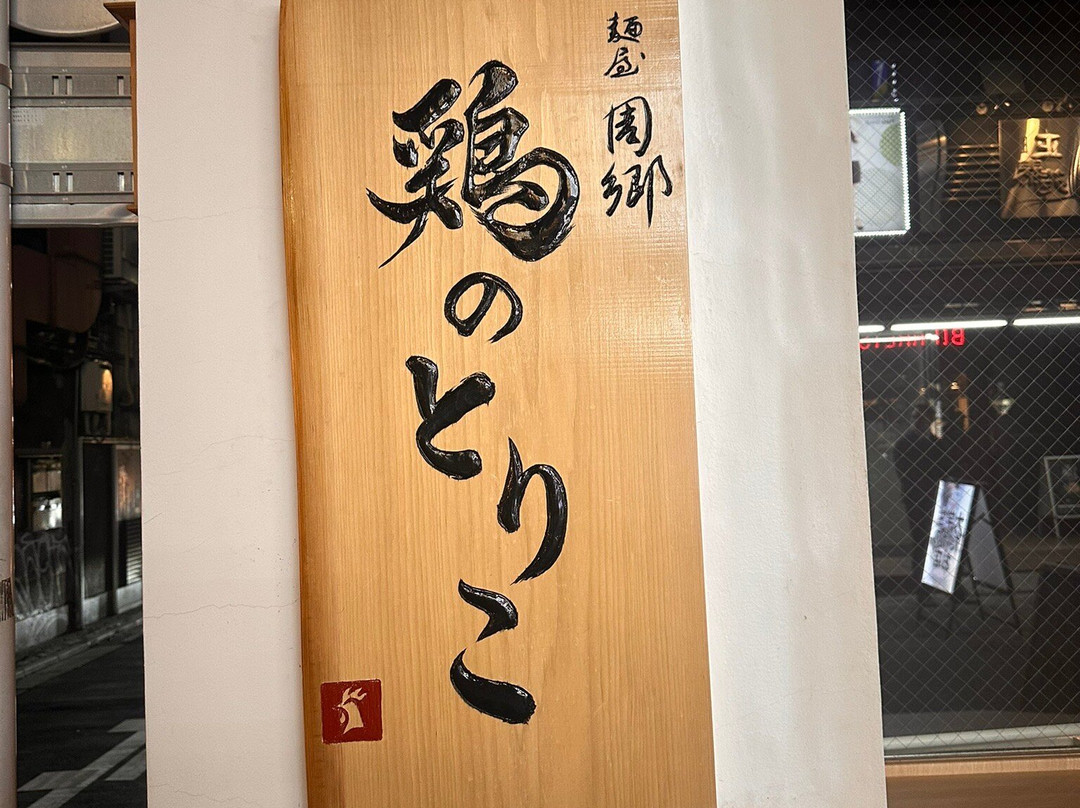 麺屋 周郷
鶏のとりこ